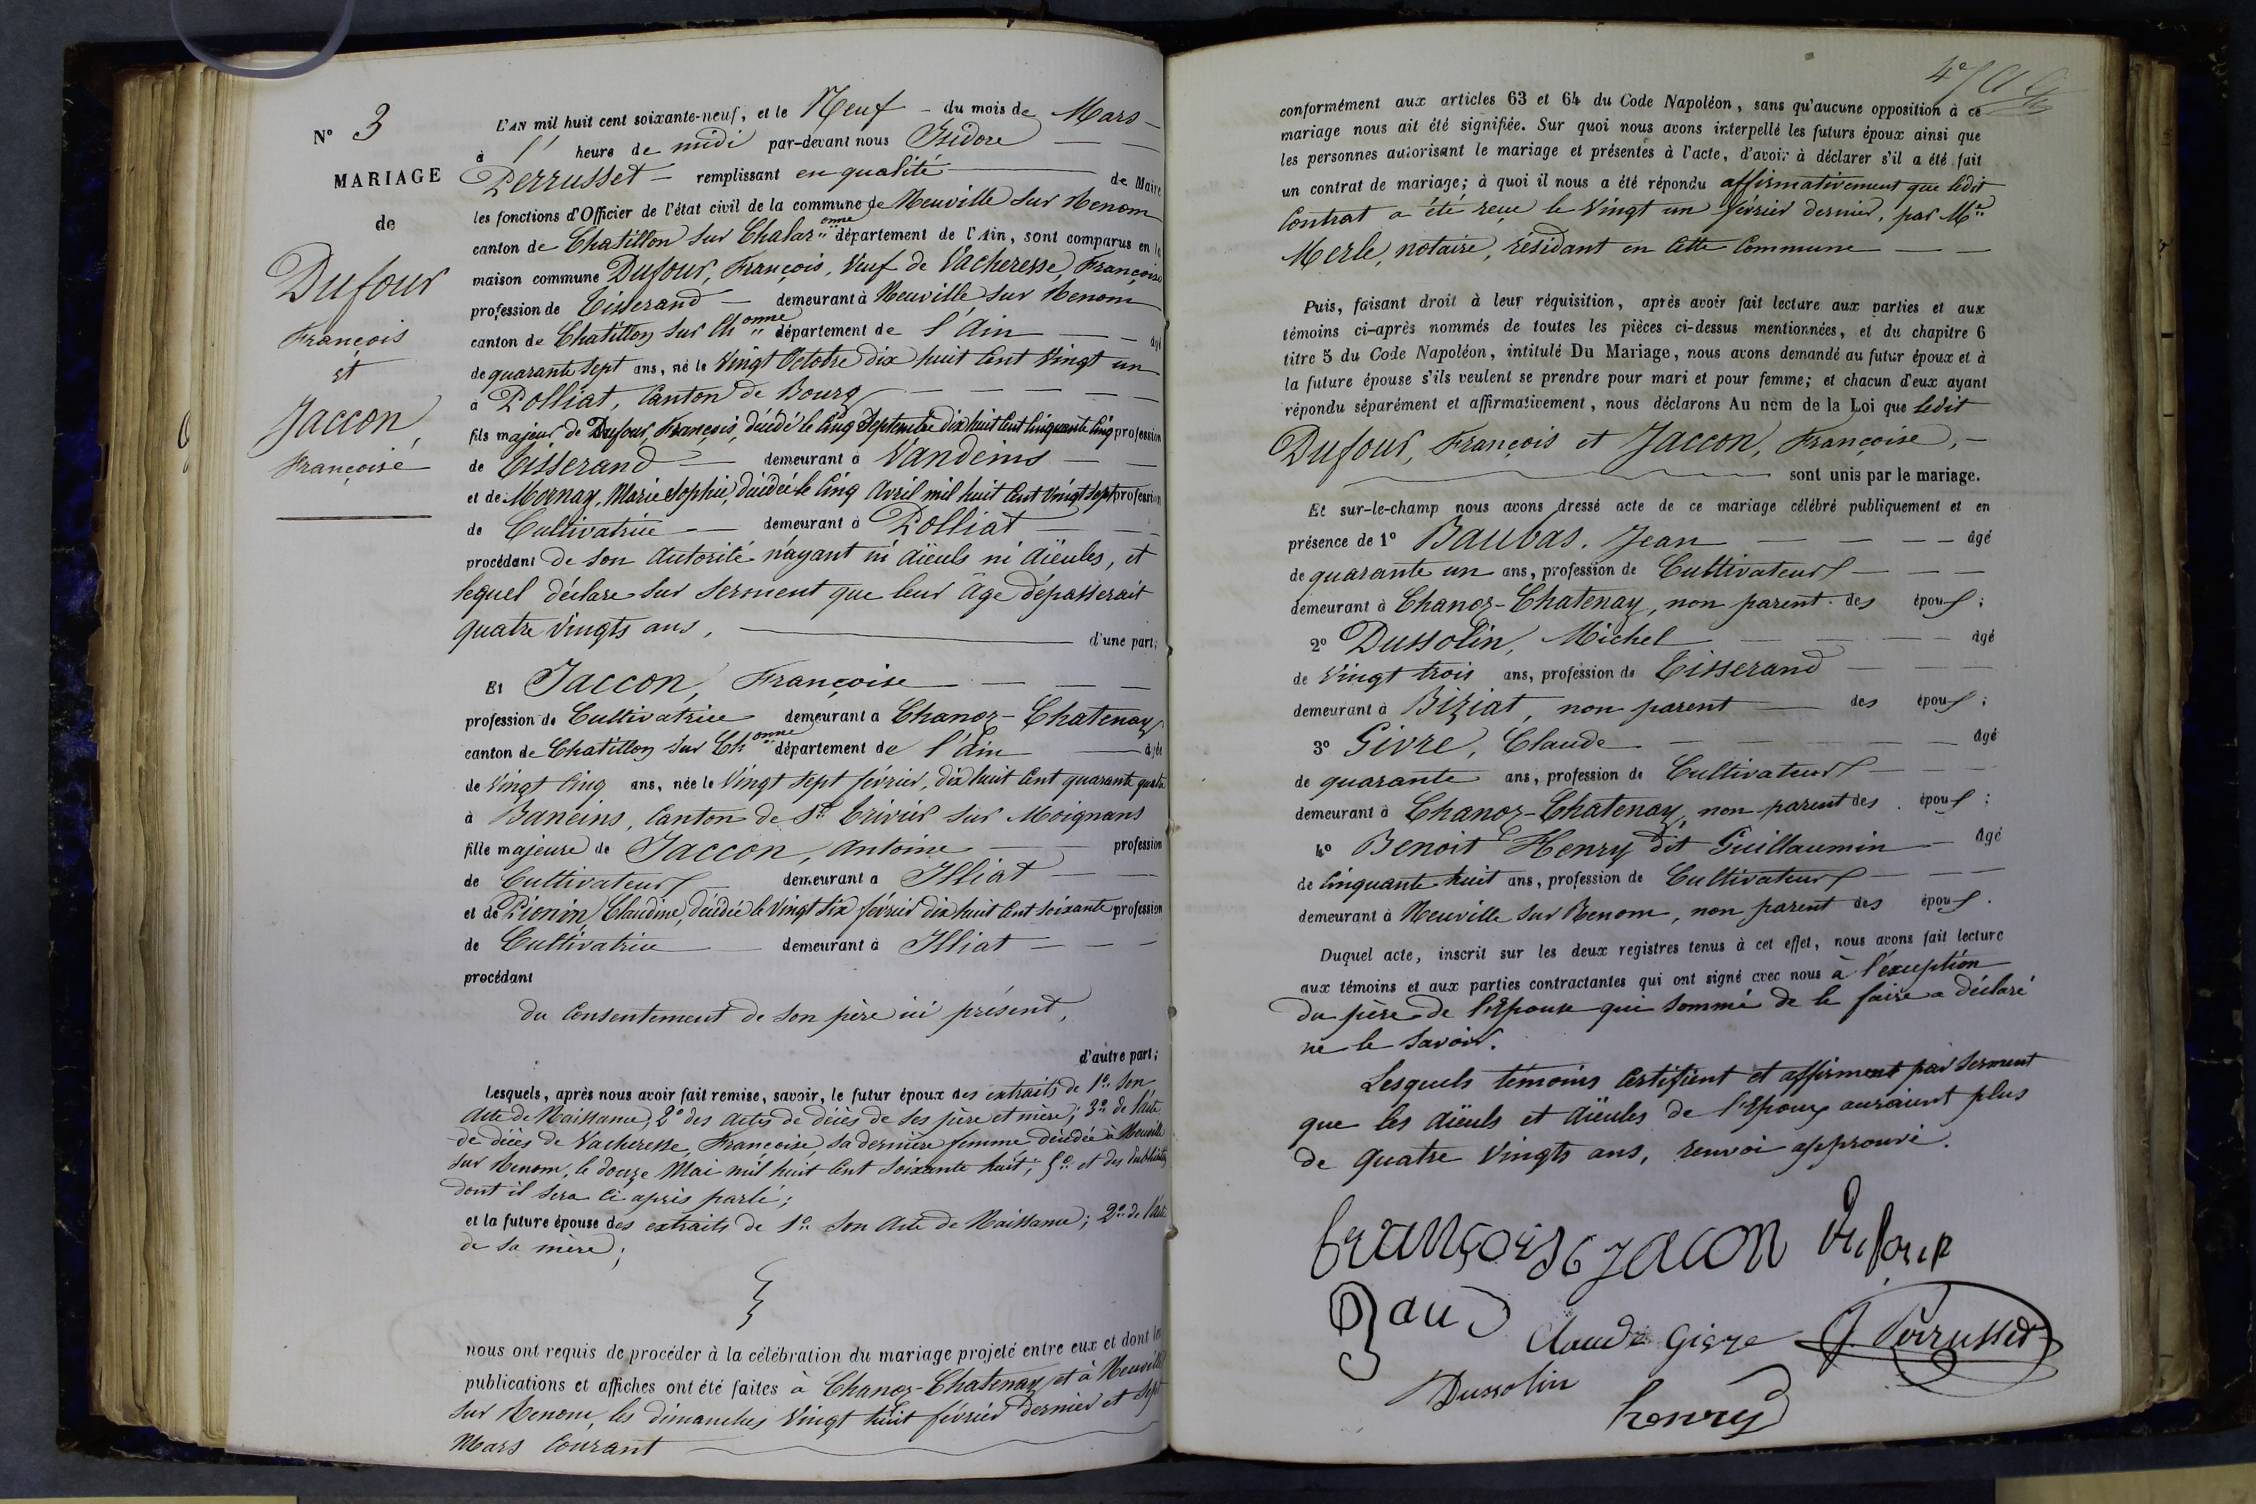 N° 3
MARIAGE
de
Dufour
François
et
Jaccon,
Françoise
L'AN mil huit cent soixante-neuf, et le Neuf du mois de Mars
à 1 heure de midi par-devant nous Isidore
Perrusset remplissant en qualité de Maire
les fonctions d'Officier de l'état civil de la commune de Neuville sur Renom
canton de Chatillon sur Chalar.onne département de l'Ain, sont comparus en la
maison commune Dufour, François, Veuf de Vacheresse, Françoise
profession de Tisserand demeurant à Neuville sur Renom
canton de Chatillon sur Ch.onne département de l'Ain âgé
de quarante sept ans, né le Vingt Octobre dix huit Cent Vingt un
à Polliat, Canton de Bourg
fils majeur de Dufour, François, décédé le Cinq Septembre dix huit Cent Cinquante Cinq profession
de Tisserand demeurant à Vandeins
et de Mornay, Marie Sophie, décédée le Cinq Avril mil huit Cent Vingt Sept profession
de Cultivatrice demeurant à Polliat
procédant de son autorité n'ayant ni aïeuls ni aïeules, et
lequel déclare sur serment que leur âge dépasserait
quatre Vingts ans, d'une part;
Et Jaccon, Françoise
profession de Cultivatrice demeurant à Chanoz-Chatenay
canton de Chatillon sur Ch.onne département de l'Ain âgée
de Vingt Cinq ans, née le Vingt Sept février, dix huit Cent quarante quatre
à Baneins, Canton de St. Trivier sur Moignans
fille majeure de Jaccon, Antoine profession
de Cultivateur demeurant à Illiat
et de Pionin, Claudine, décédée le Vingt Six février dix huit Cent Soixante profession
de Cultivatrice demeurant à Illiat
procédant
du Consentement de son père ici présent,
d'autre part;
Lesquels, après nous avoir fait remise, savoir, le futur époux des extraits de 1° Son
Acte de Naissance; 2° des actes de décès de ses père et mère; 3° de l'acte
de décès de Vacheresse, Françoise, sa dernière femme décédée à Neuville
sur Renom, le douze Mai mil huit Cent Soixante huit; 5° et des Publications
dont il sera Ci après parlé;
et la future épouse des extraits de 1° Son Acte de Naissance; 2° de l'acte
de sa mère;
nous ont requis de procéder à la célébration du mariage projeté entre eux et dont les
publications et affiches ont été faites à Chanoz-Chatenay et à Neuville
sur Renom, les dimanches Vingt huit février dernier et Sept
Mars Courant
conformément aux articles 63 et 64 du Code Napoléon, sans qu'aucune opposition à ce
mariage nous ait été signifiée. Sur quoi nous avons interpellé les futurs époux ainsi que
les personnes autorisant le mariage et présentes à l'acte, d'avoir à déclarer s'il a été fait
un contrat de mariage; à quoi il nous a été répondu affirmativement que ledit
Contrat a été reçu le Vingt un février dernier, par Me
Merle, notaire, résidant en Cette Commune
Puis, faisant droit à leur réquisition, après avoir fait lecture aux parties et aux
témoins ci-après nommés de toutes les pièces ci-dessus mentionnées, et du chapitre 6
titre 5 du Code Napoléon, intitulé Du Mariage, nous avons demandé au futur époux et à
la future épouse s'ils veulent se prendre pour mari et pour femme; et chacun d'eux ayant
répondu séparément et affirmativement, nous déclarons Au nom de la Loi que ledit
Dufour, François et Jaccon, Françoise,
sont unis par le mariage.
Et sur-le-champ nous avons dressé acte de ce mariage célébré publiquement et en
présence de 1° Baubas. Jean âgé
de quarante un ans, profession de Cultivateur
demeurant à Chanoz-Chatenay, non parent des époux;
2° Dussolin, Michel âgé
de Vingt trois ans, profession de Tisserand
demeurant à Biziat, non parent des époux;
3° Givre, Claude âgé
de quarante ans, profession de Cultivateur
demeurant à Chanoz-Chatenay, non parent des époux;
4° Benoit Henry dit Guillaumin âgé
de Cinquante huit ans, profession de Cultivateur
demeurant à Neuville sur Renom, non parent des époux.
Duquel acte, inscrit sur les deux registres tenus à cet effet, nous avons fait lecture
aux témoins et aux parties contractantes qui ont signé avec nous à l'exception
du père de l'Epouse qui sommé de le faire a déclaré
ne le savoir.
Lesquels témoins Certifient et affirment par Serment
que les aïeuls et aïeules de l'Epoux auraient plus
de quatre Vingts ans, renvoi approuvé.
françoise jacon Dufour
Claude Givre J. Perrusset
Dussolin
henry